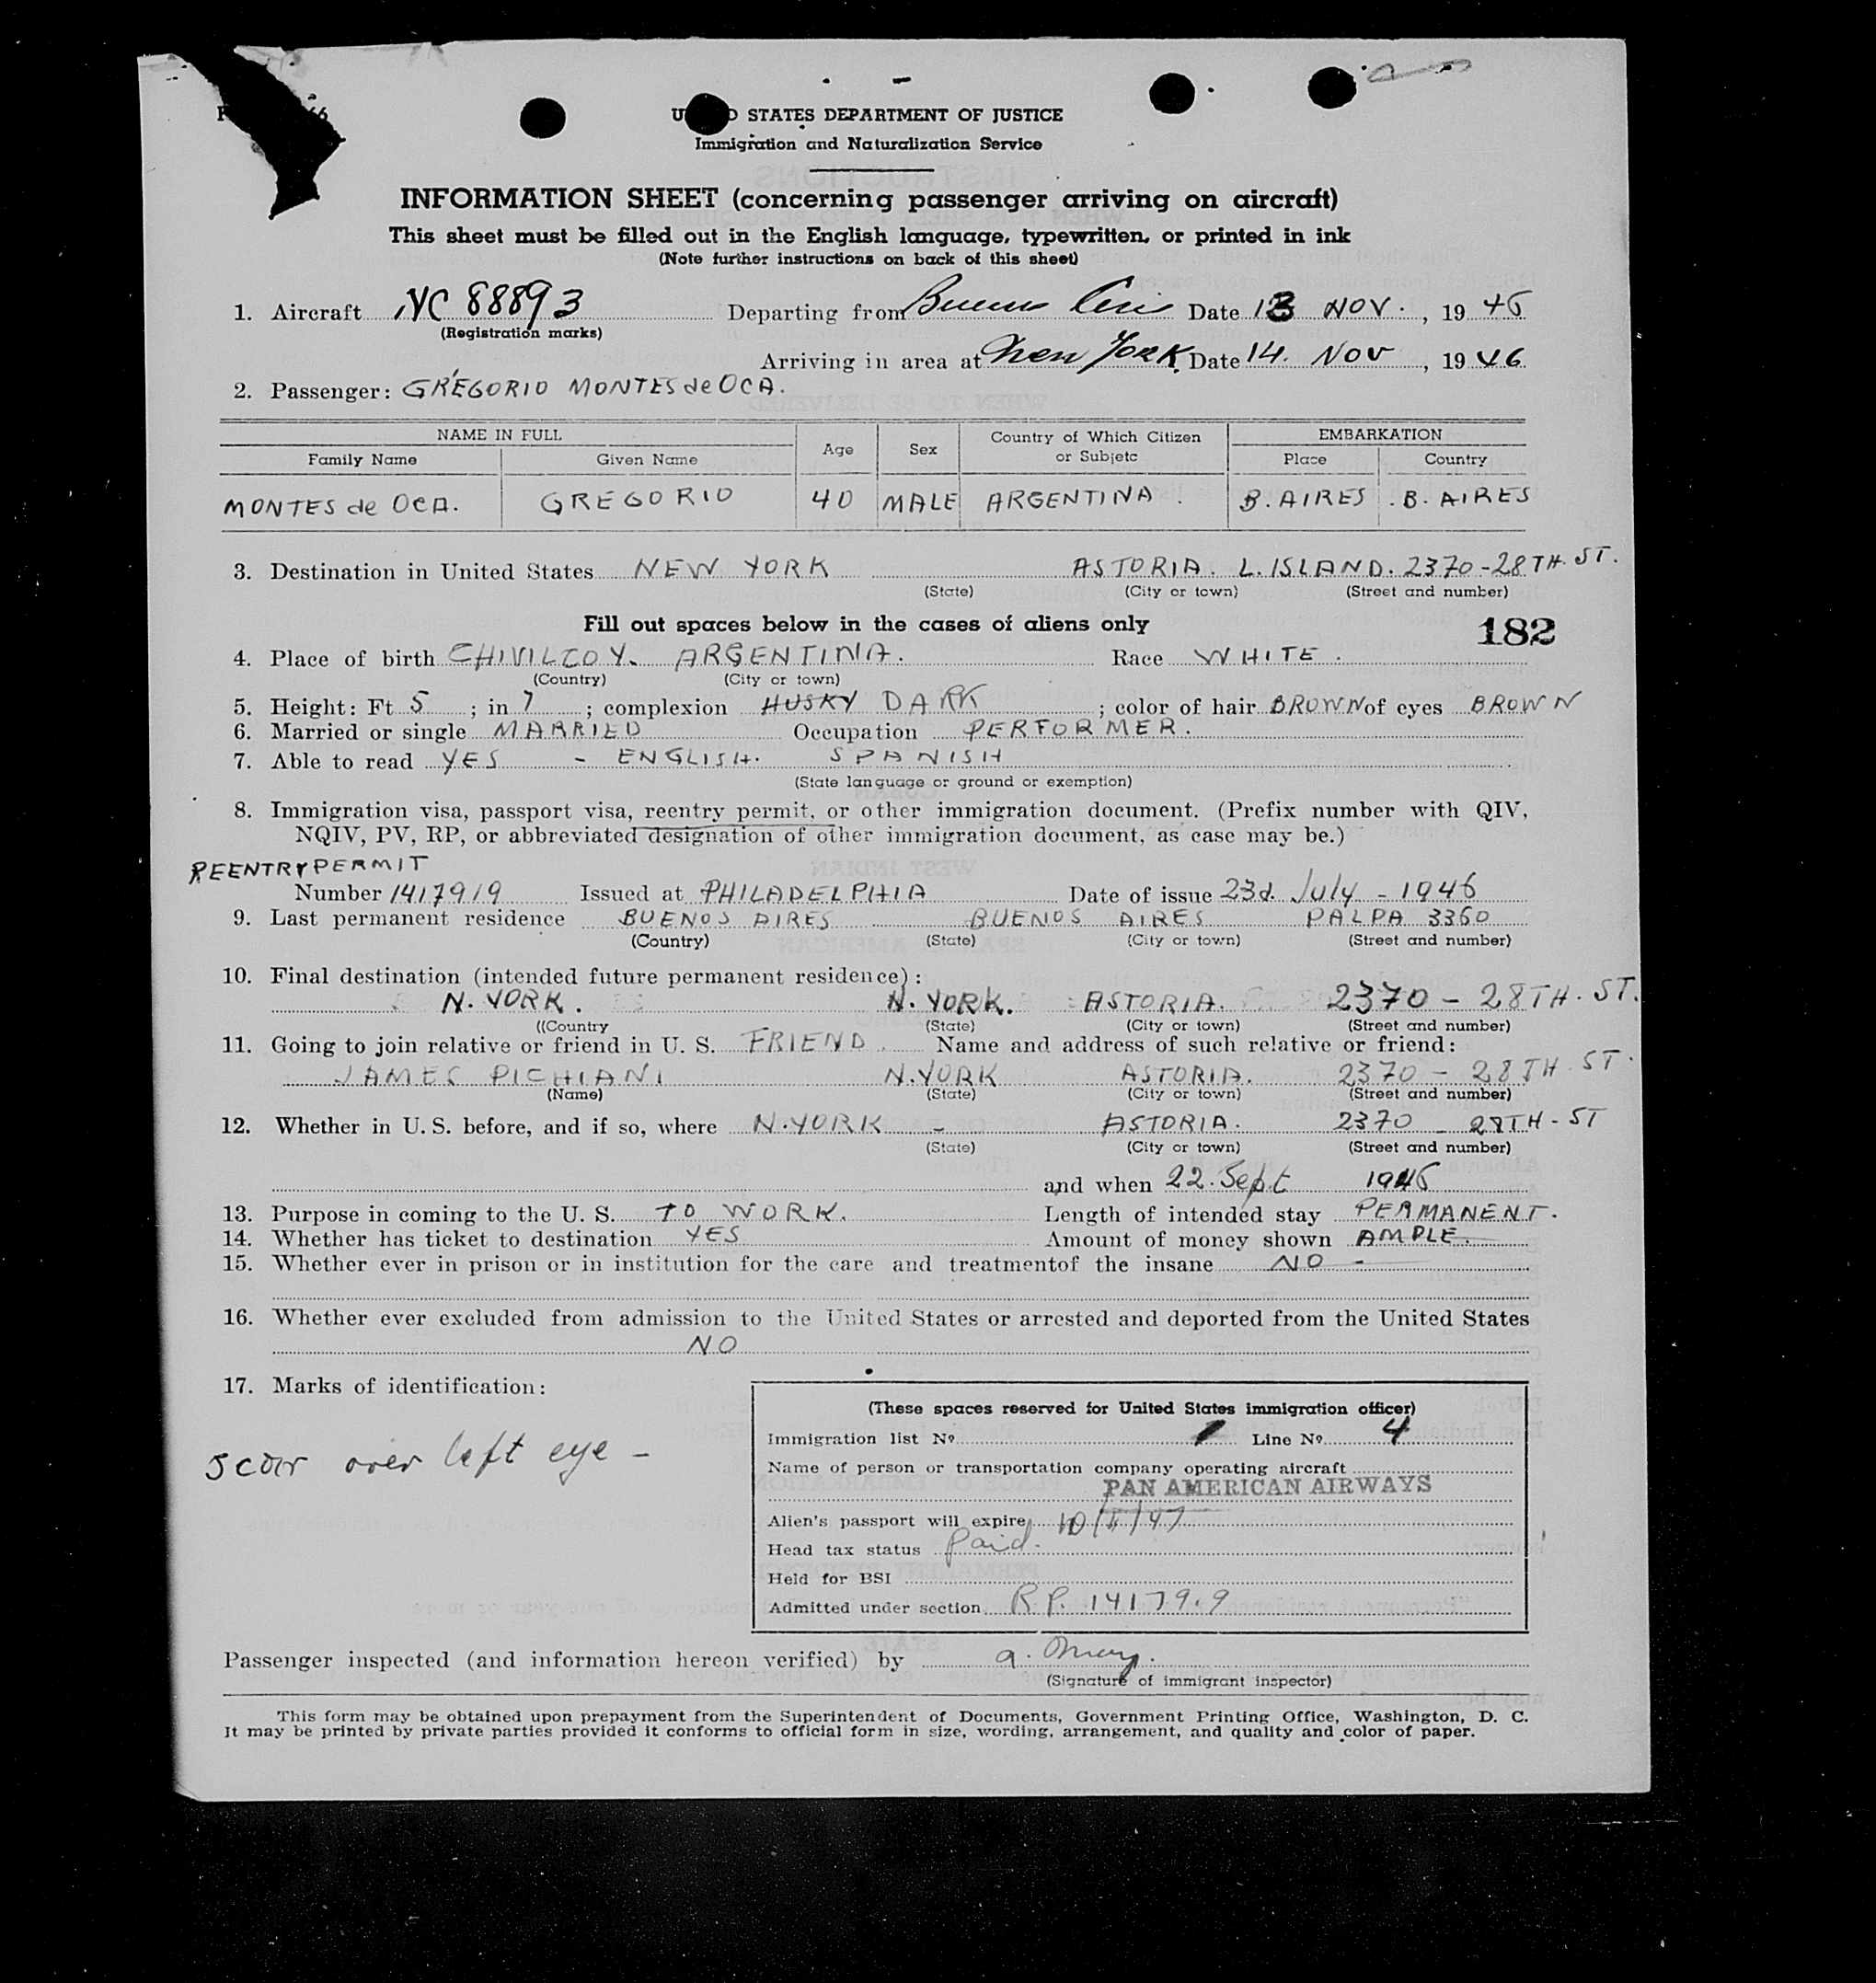 STATES DEPARTMENT OF JUSTICE
Immigration and Naturalization Service
INFORMATION SHEET (concerning passenger arriving on aircraft)
This sheet must be filled out in the English language, typewritten, or printed in ink
(Note further instructions on back of this sheet)
1. Aircraft NC 88893 Departing from Buenos Aires Date 13 NOV. , 19 46
(Registration marks)
Arriving in area at New York Date 14. Nov , 19 46
2. Passenger: GRÉGORIO MONTES de OCA.
NAME IN FULL Age Sex Country of Which Citizen or Subjetc EMBARKATION
Family Name Given Name Place Country
MONTES de OCA. GREGORIO 40 MALE ARGENTINA . B. AIRES . B. AIRES
3. Destination in United States NEW YORK ASTORIA. L. ISLAND. 2370-28TH. ST.
(State) (City or town) (Street and number)
Fill out spaces below in the cases of aliens only
182
4. Place of birth CHIVILCOY. ARGENTINA. Race WHITE .
(Country) (City or town)
5. Height: Ft 5 ; in 7 ; complexion HUSKY DARK ; color of hair BROWN of eyes BROWN
6. Married or single MARRIED Occupation PERFORMER.
7. Able to read YES - ENGLISH. SPANISH
(State language or ground or exemption)
8. Immigration visa, passport visa, reentry permit, or other immigration document. (Prefix number with QIV,
NQIV, PV, RP, or abbreviated designation of other immigration document, as case may be.)
REENTRY PERMIT
Number 1417919 Issued at PHILADELPHIA Date of issue 23d. July - 1946
9. Last permanent residence BUENOS AIRES BUENOS AIRES PALPA 3360
(Country) (State) (City or town) (Street and number)
10. Final destination (intended future permanent residence) :
N. YORK. N. YORK. ASTORIA. 2370 - 28TH. ST.
((Country (State) (City or town) (Street and number)
11. Going to join relative or friend in U. S. FRIEND. Name and address of such relative or friend:
JAMES PICHIANI N. YORK ASTORIA. 2370 - 28TH. ST.
(Name) (State) (City or town) (Street and number)
12. Whether in U. S. before, and if so, where N. YORK - ASTORIA. 2370 - 28TH - ST
(State) (City or town) (Street and number)
and when 22. Sept 1946
13. Purpose in coming to the U. S. TO WORK. Length of intended stay PERMANENT.
14. Whether has ticket to destination YES Amount of money shown AMPLE.
15. Whether ever in prison or in institution for the care and treatmentof the insane NO -
16. Whether ever excluded from admission to the United States or arrested and deported from the United States
NO
17. Marks of identification:
scar over left eye -
(These spaces reserved for United States immigration officer)
Immigration list No. 1 Line No. 4
Name of person or transportation company operating aircraft
PAN AMERICAN AIRWAYS
Alien's passport will expire
Head tax status Paid.
Held for BSI
Admitted under section R.P. 1417919
Passenger inspected (and information hereon verified) by
(Signature of immigrant inspector)
This form may be obtained upon prepayment from the Superintendent of Documents, Government Printing Office, Washington, D. C.
It may be printed by private parties provided it conforms to official form in size, wording, arrangement, and quality and color of paper.